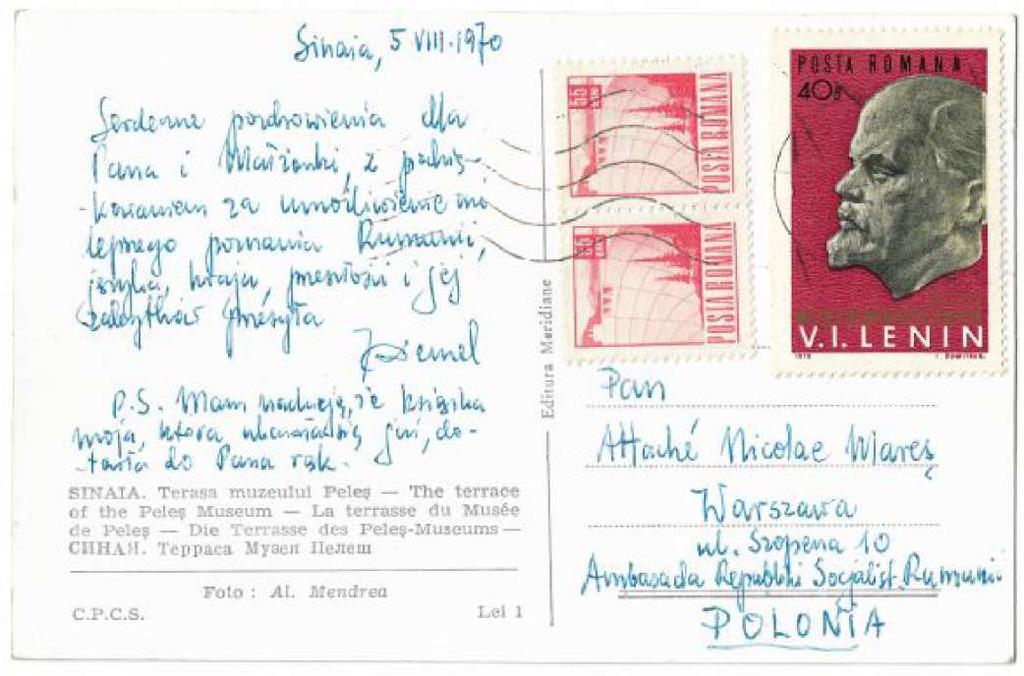 Sinaia, 5 VIII.1970
Serdeczne pozdrowienia dla
Pana i Małżonki, z podzię-
-kowaniem za umożliwienie mi
lepszego poznania Rumunii,
języka, kraju, przeszłości i jej
zabytków przesyła
P.S. Mam nadzieję, że książka
moja, która ukazała się już, do-
-tarła do Pana rąk.
SINAIA. Terasa muzeului Peleș — The terrace
of the Peleș Museum — La terrasse du Musée
de Peleș — Die Terrasse des Peleș-Museums —
СИНАЯ. Терраса Музея Пелеш
Foto : Al. Mendrea
C.P.C.S. Lei 1
Editura Meridiane
55
BANI
POSTA ROMANA
55
BANI
POSTA ROMANA
POSTA ROMANA
40B
V.I. LENIN
1970 I. DUMITRANA
Pan
Attaché Nicolae Mareș
Warszawa
ul. Szopena 10
Ambasada Republiki Socjalist. Rumunii
POLONIA